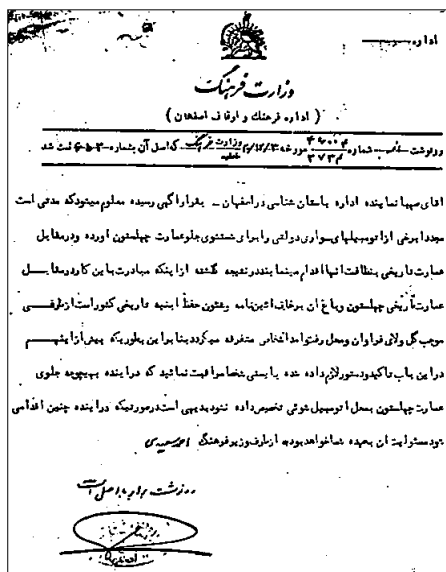 اداره
وزارت فرهنگ
( اداره فرهنگ و اوقاف اصفهان )
رونوشت شماره مورخه وزارت فرهنگ که اصل آن بشماره ثبت شد
اقای صهبا نماینده اداره باستان شناسی در اصفهان ـ بقرار اگهی رسیده معلوم میشود که مدتی است
مجددا برخی از اتومبیلهای سواری دولتی را برای شستشوی جلو عمارت چهلستون اورده و در مقابل
عمارت تاریخی بنظافت انها اقدام مینمایند در نتیجه گذشته از اینکه مبادرت باین کار در مقابل
عمارت تاریخی چهلستون و باغ ان برخلاف ائین نامه وشئون حفظ ابنیه تاریخی کشور است از طرفی
موجب گل ولای فراوان ومحل رفت وامد اشخاص متفرقه میگردد بنا بر این بطوریکه پیش از اینهم
در این باب تاکید و دستور لازم داده شده بایستی شخصا مراقبت نمائید که در اینده بهیچوجه جلوی
عمارت چهلستون بمحل اتومبیل شوئی تخصیص داده نشود بدیهی است در صورتیکه در اینده چنین اقدامی
شود مسئولیت ان بعهده شما خواهد بود ـ از طرف وزیر فرهنگ
رونوشت برابر با اصل است